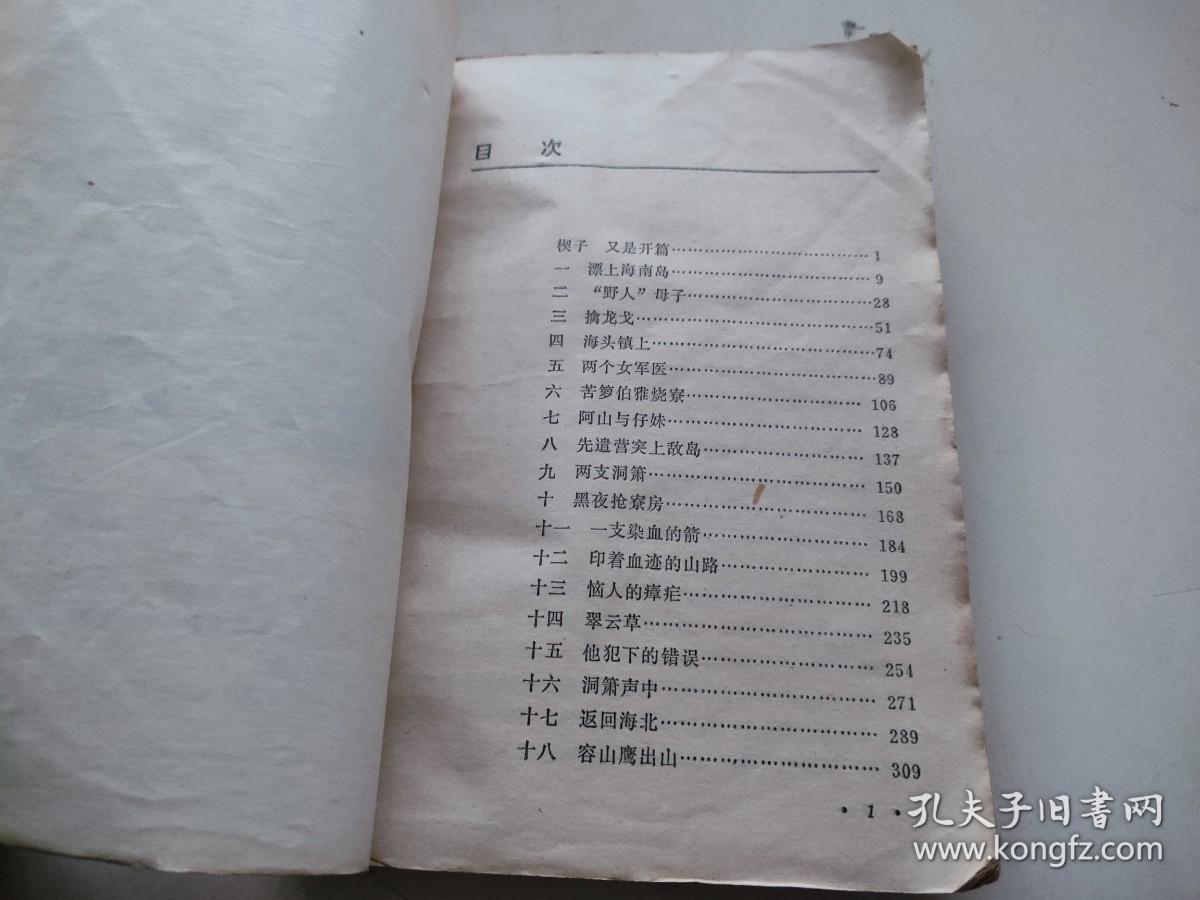 目 次
楔子 又是开篇………………………………1
一 漂上海南岛………………………………9
二 “野人”母子………………………………28
三 擒龙戈………………………………51
四 海头镇上………………………………74
五 两个女军医………………………………89
六 苦箩伯雅烧寮………………………………106
七 阿山与仔妹………………………………128
八 先遣营突上敌岛………………………………137
九 两支洞箫………………………………150
十 黑夜抢寮房………………………………168
十一 一支染血的箭………………………………184
十二 印着血迹的山路………………………………199
十三 恼人的瘴疟………………………………218
十四 翠云草………………………………235
十五 他犯下的错误………………………………254
十六 洞箫声中………………………………271
十七 返回海北………………………………289
十八 容山鹰出山………………………………309
· 1 ·
孔夫子旧书网
www.kongfz.com